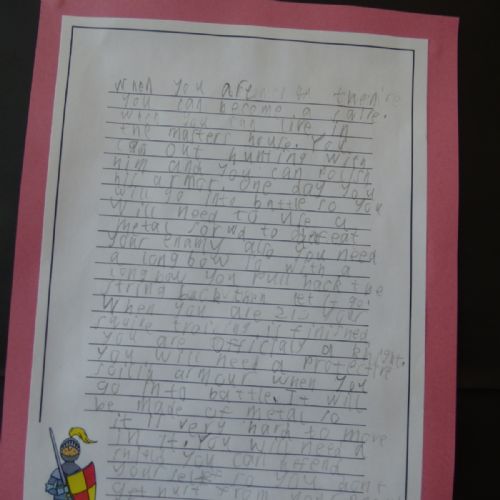 When you are
you can become a
with you can live in
the masters house. You
can out hunting with
him and you can polish
his armor. One day you
will go into battle so you
will need to use a
metal to defeat
your enemy also you need
a long bow so with a
long bow you pull back the
string back then let it go!
When you are 21 your
training is finished
you are officialy a knight.
you will need a protective
armour when you
go into battle. It will
be made of metal so
it very hard to move
in it. You will need a
you can defend
your you dont
get hurt from